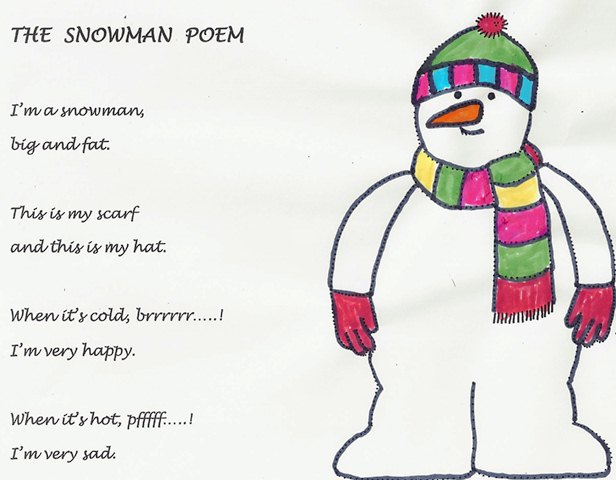 THE SNOWMAN POEM
I'm a snowman,
big and fat.
This is my scarf
and this is my hat.
When it's cold, brrrrrr.....!
I'm very happy.
When it's hot, pfffff.....!
I'm very sad.